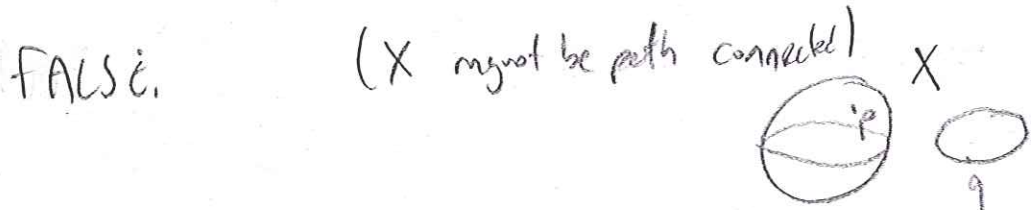 FALSE. (X may not be path connected) X
p
q